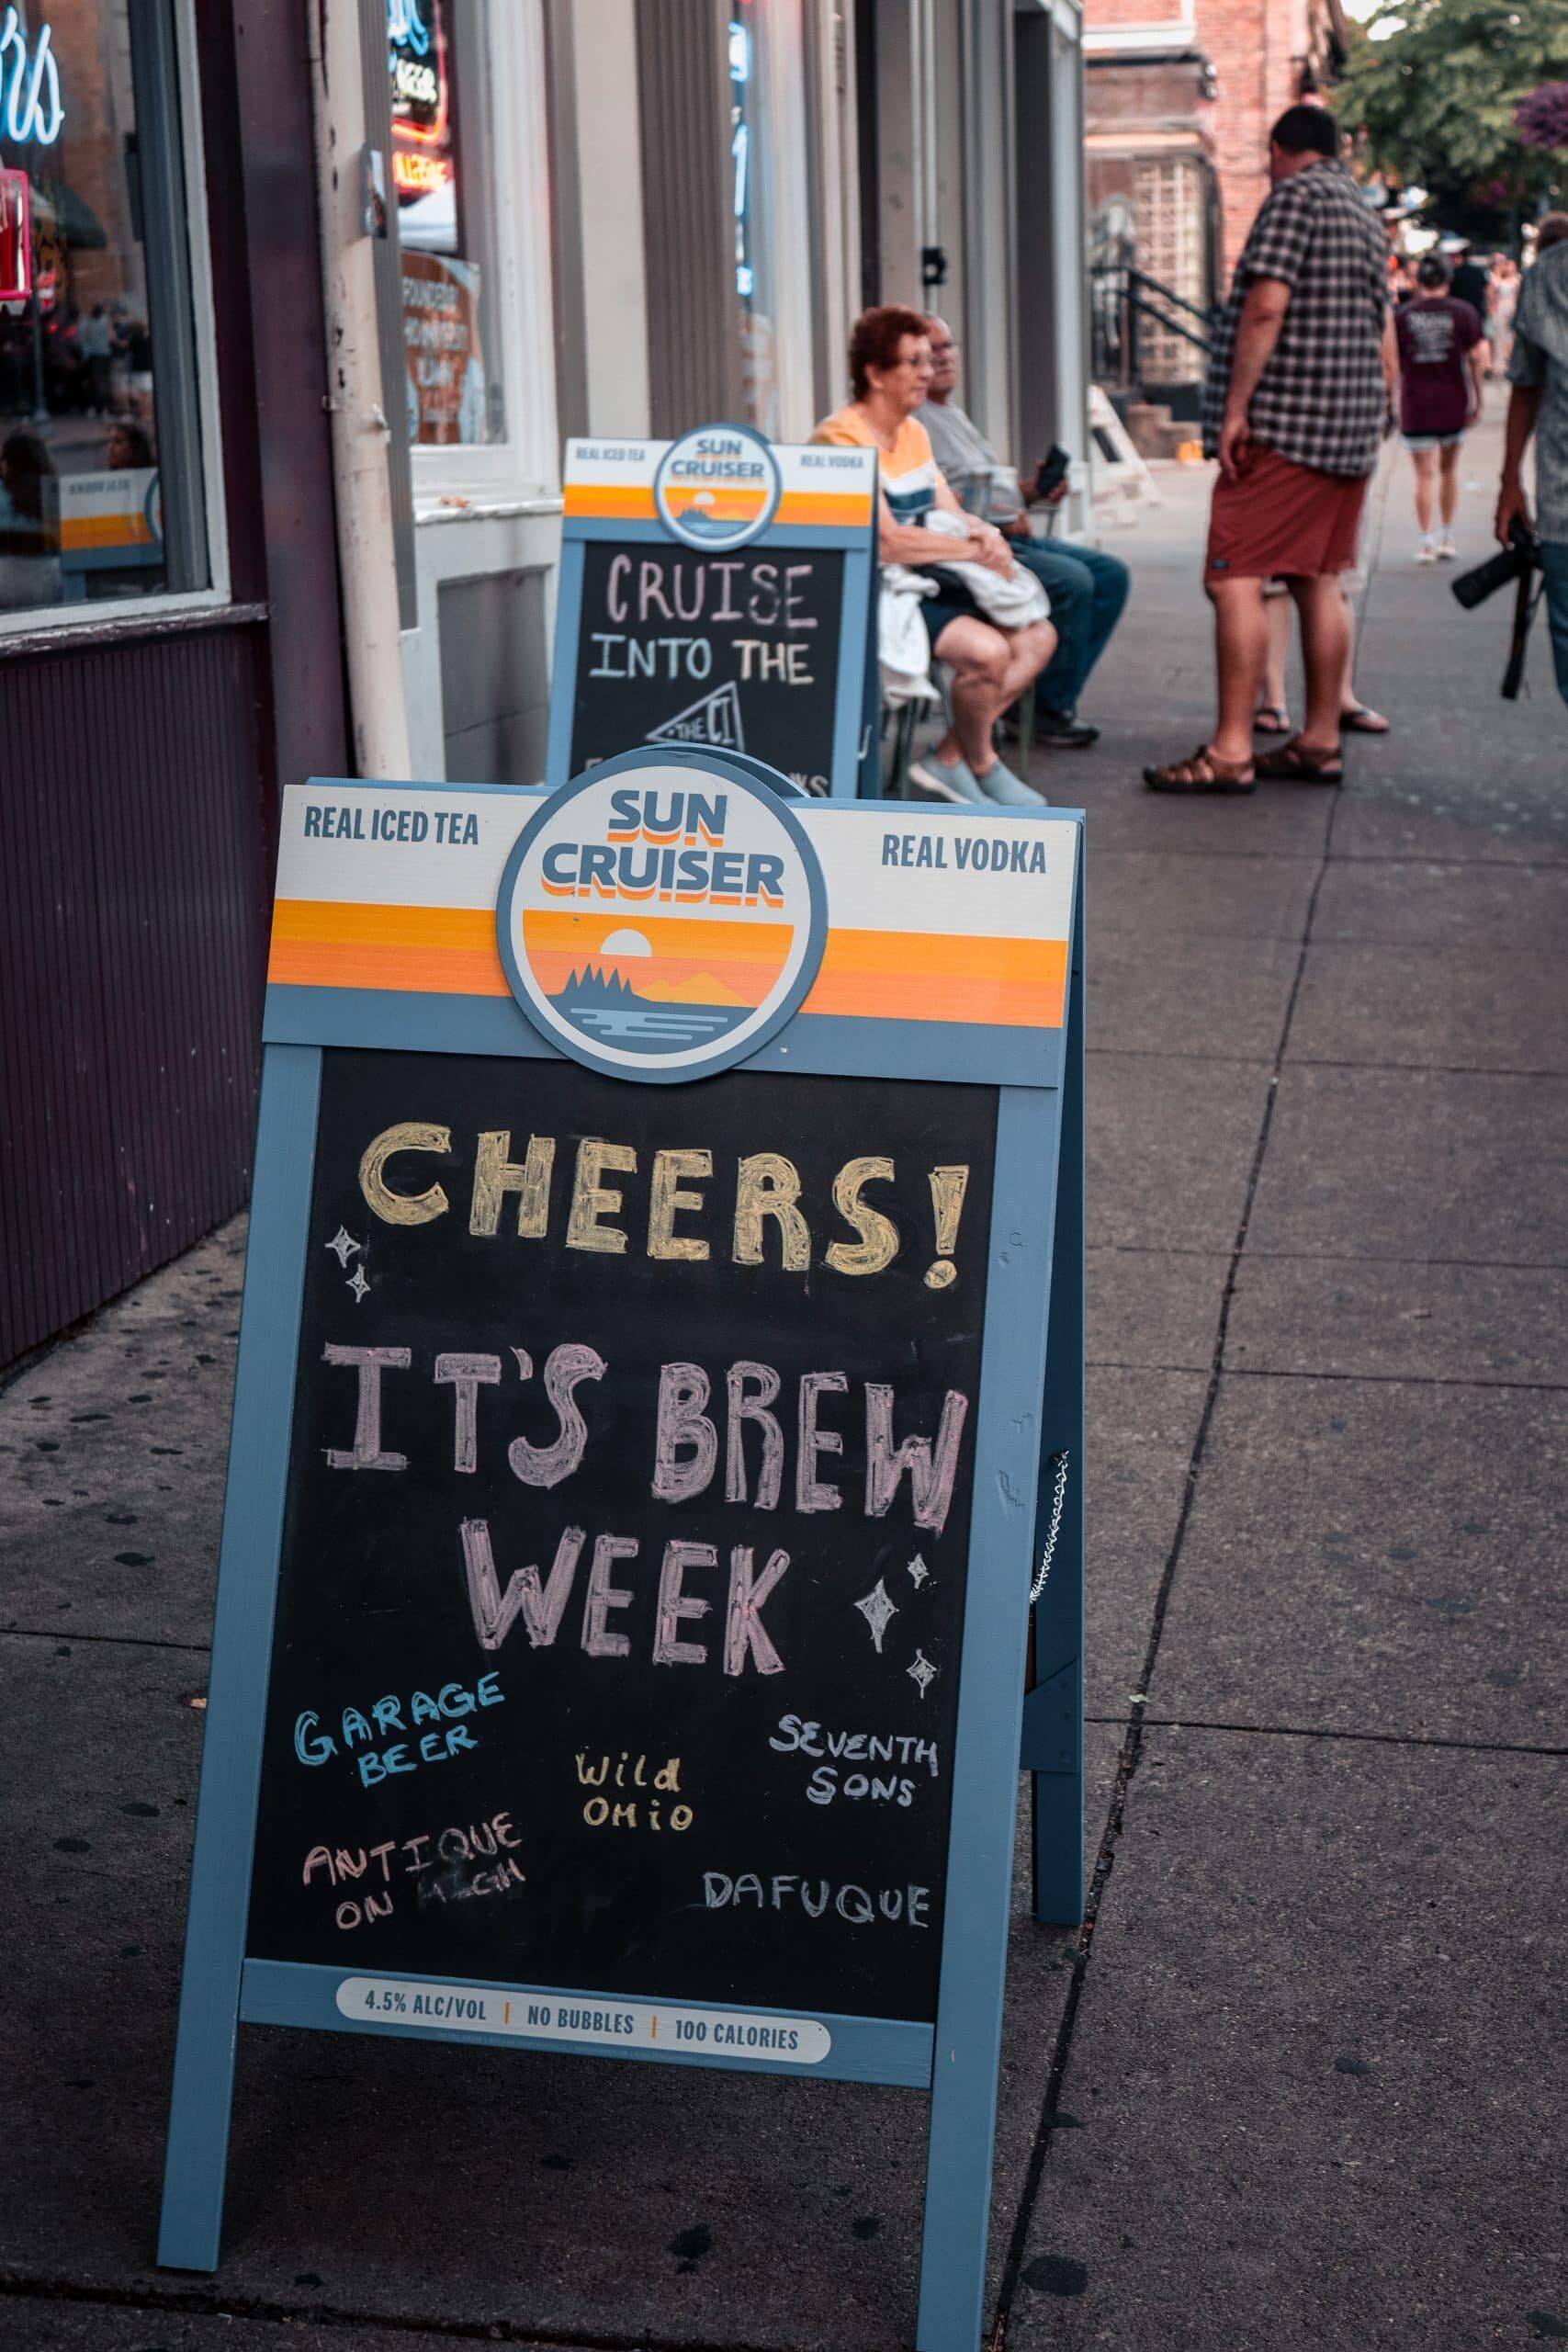 REAL ICED TEA
SUN
CRUISER
REAL VODKA
CRUISE
INTO THE
THE CI
REAL ICED TEA
SUN
CRUISER
REAL VODKA
CHEERS!
IT'S BREW
WEEK
GARAGE
BEER
Wild
OHiO
SEVENTH
SONS
ANTIQUE
ON HIGH
DAFUQUE
4.5% ALC/VOL | NO BUBBLES | 100 CALORIES